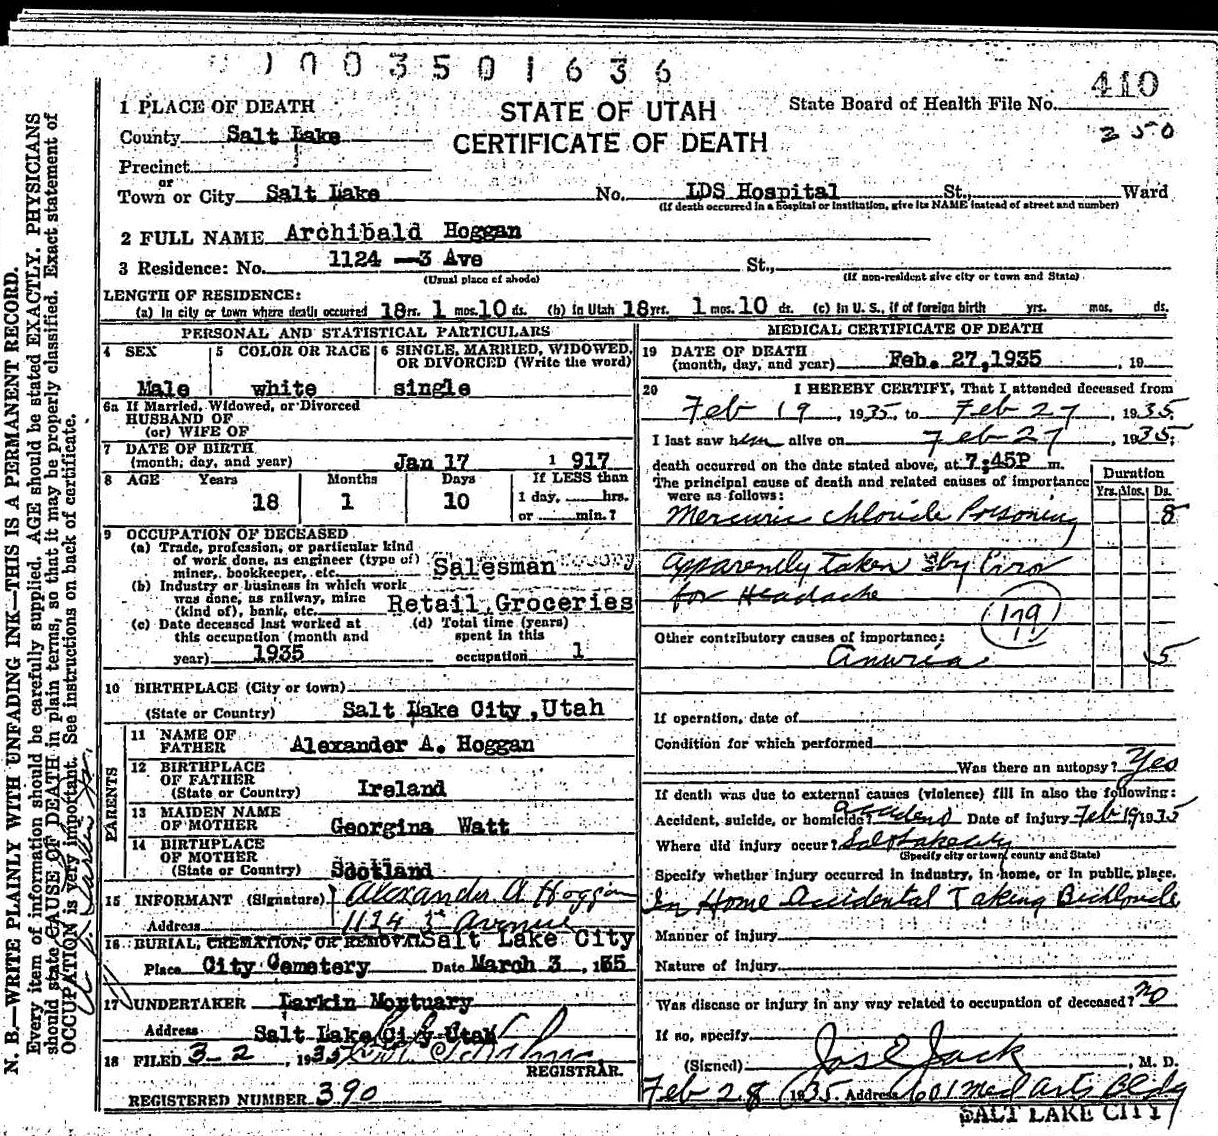 1003501636
410
1 PLACE OF DEATH
STATE OF UTAH
State Board of Health File No.
County Salt Lake
CERTIFICATE OF DEATH
250
Precinct
or
Town or City Salt Lake No. LDS Hospital St., Ward
(If death occurred in a hospital or institution, give its NAME instead of street and number)
2 FULL NAME Archibald Hoggan
3 Residence: No. 1124 -3 Ave St.,
(Usual place of abode) (If non-resident give city or town and State)
LENGTH OF RESIDENCE:
(a) In city or town where death occurred 18 yrs. 1 mos. 10 ds. (b) In Utah 18 yrs. 1 mos. 10 ds. (c) In U. S., if of foreign birth yrs. mos. ds.
PERSONAL AND STATISTICAL PARTICULARS
4 SEX
Male
5 COLOR OR RACE
white
6 SINGLE, MARRIED, WIDOWED, OR DIVORCED (Write the word)
single
6a If Married, Widowed, or Divorced
HUSBAND OF
(or) WIFE OF
7 DATE OF BIRTH
(month, day, and year) Jan 17 1917
8 AGE Years Months Days If LESS than
18 1 10 1 day, hrs.
or min.?
9 OCCUPATION OF DECEASED
(a) Trade, profession, or particular kind
of work done, as engineer (type of)
miner, bookkeeper, etc. Salesman
(b) Industry or business in which work
was done, as railway, mine
(kind of), bank, etc. Retail Groceries
(c) Date deceased last worked at
this occupation (month and
year) 1935
(d) Total time (years)
spent in this
occupation 1
10 BIRTHPLACE (City or town)
(State or Country) Salt Lake City, Utah
PARENTS
11 NAME OF
FATHER Alexander A. Hoggan
12 BIRTHPLACE
OF FATHER
(State or Country) Ireland
13 MAIDEN NAME
OF MOTHER Georgina Watt
14 BIRTHPLACE
OF MOTHER
(State or Country) Scotland
15 INFORMANT (Signature) Alexander A Hoggan
Address 1124 3rd Avenue
16 BURIAL, CREMATION, OR REMOVAL Salt Lake City
Place City Cemetery Date March 3, 135
17 UNDERTAKER Larkin Mortuary
Address Salt Lake City Utah
18 FILED 3-2, 1935
REGISTRAR.
REGISTERED NUMBER 390
MEDICAL CERTIFICATE OF DEATH
19 DATE OF DEATH
(month, day, and year) Feb. 27, 1935, 19
20 I HEREBY CERTIFY, That I attended deceased from
Feb 19, 1935 to Feb 27, 1935.
I last saw him alive on Feb 27, 1935;
death occurred on the date stated above, at 7:45P m.
The principal cause of death and related causes of importance
were as follows:
Duration
Yrs. Mos. Ds.
Mercuric chloride Poisoning 8
apparently taken by Error
for Headache
179
Other contributory causes of importance:
Anuria 5
If operation, date of
Condition for which performed
Was there an autopsy? Yes
If death was due to external causes (violence) fill in also the following:
Accident, suicide, or homicide? accident Date of injury Feb 19 1935
Where did injury occur? Salt Lake City
(Specify city or town, county and State)
Specify whether injury occurred in industry, in home, or in public place.
In Home Accidental Taking Bichloride
Manner of injury
Nature of injury
Was disease or injury in any way related to occupation of deceased? no
If so, specify
(Signed) Jas E Jack, M. D.
Feb 28 1935 Address 601 Med Arts Bldg
SALT LAKE CITY
N. B.—WRITE PLAINLY WITH UNFADING INK—THIS IS A PERMANENT RECORD.
Every item of information should be carefully supplied. AGE should be stated EXACTLY. PHYSICIANS
should state CAUSE OF DEATH in plain terms, so that it may be properly classified. Exact statement of
OCCUPATION is very important. See instructions on back of certificate.